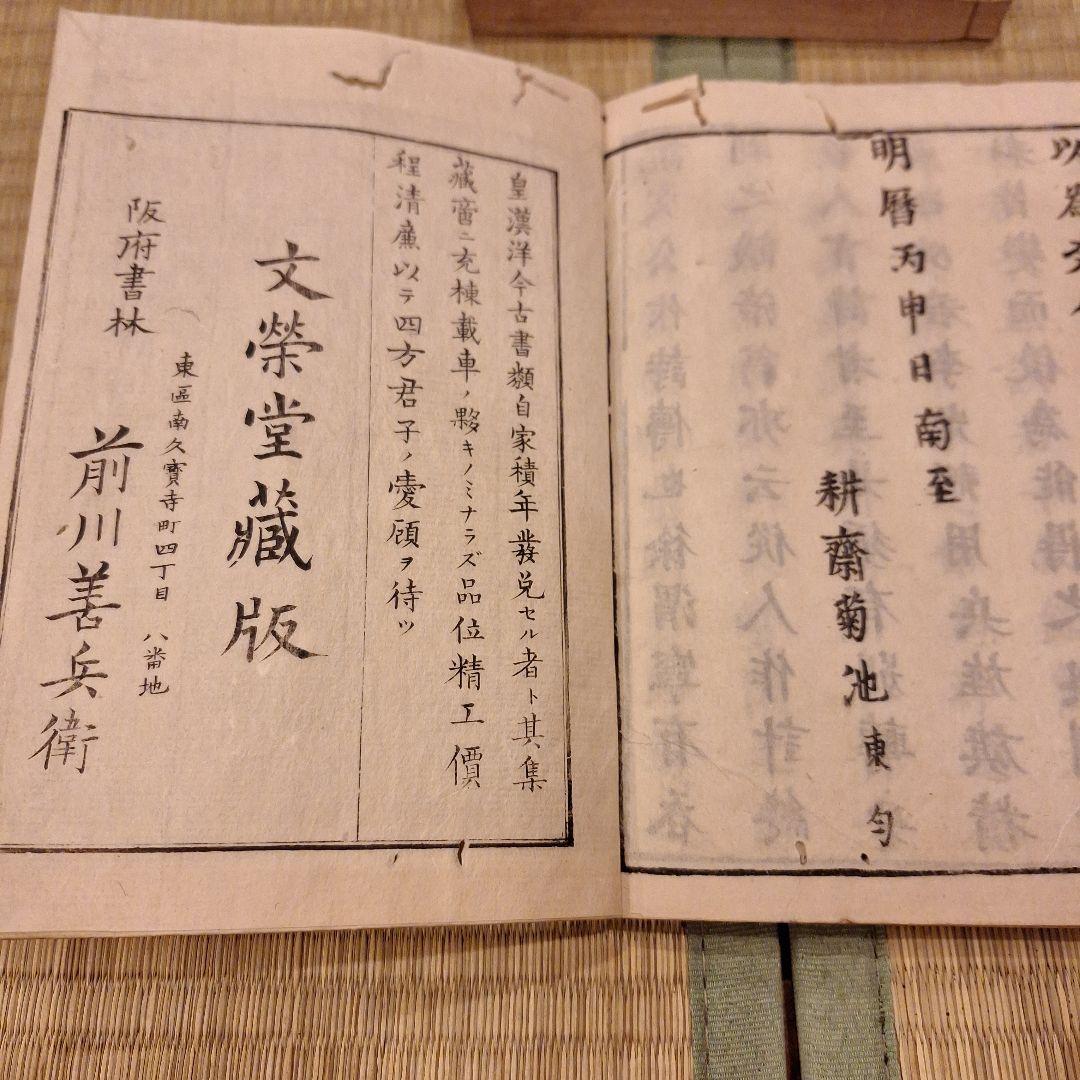 明曆丙申日南至
耕齋菊池東匀
皇漢洋今古書類自家積年發兌セル者ト其集
藏啻ニ充棟載車ノ夥キノミナラズ品位精工價
程清廉以テ四方君子ノ愛顧ヲ待ツ
文榮堂藏版
阪府書林
東區南久寶寺町四丁目 八番地
前川善兵衛